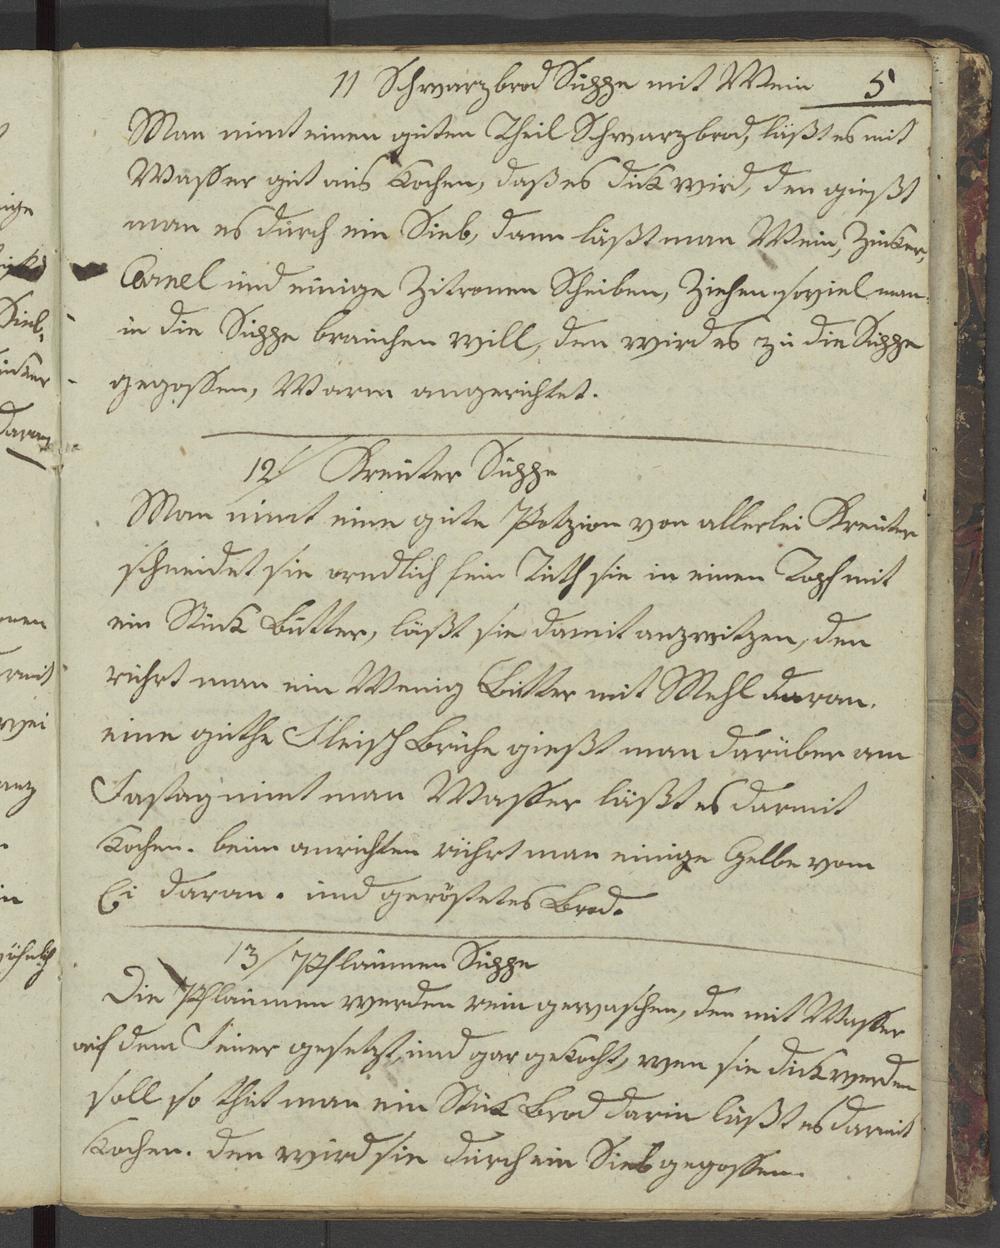 11 Schwarzbrod Suppe mit Wein 5
Man nimt einen guten Theil Schwarzbrod, läßt es mit
Wasser gut aus kochen, daß es dick wird, den gießt
man es durch ein Sieb, dann läßt man Wein, Zucker,
Canel und einige Zitronen Scheiben, Ziehen soviel man
in die Suppe brauchen will, den wird es zu die Suppe
gegossen, Warm angerichtet.
12/ Kreuter Suppe
Man nimt eine gute Potzion von allerlei Kreuter
schneidet sie orndlich fein Tuth sie in einen Topf mit
ein Stück Butter, läßt sie damit anzwitzen, den
rührt man ein Wenig Butter mit Mehl daran.
eine guthe Fleisch Brühe gießt man darüber am
Fastag nimt man Wasser läßt es darmit
kochen. beim anrichten rührt man einige Gelbe vom
Ei daran. und geröstetes Brod.
13/ Pflaumen Suppe
Die Pflaumen werden rein gewaschen, den mit Wasser
auf dem Feuer gesetzt und gar gekocht, wen sie dick werden
soll so thut man ein Stück Brod darin läßt es darmit
kochen. den wird sie durch ein Sieb gegossen.